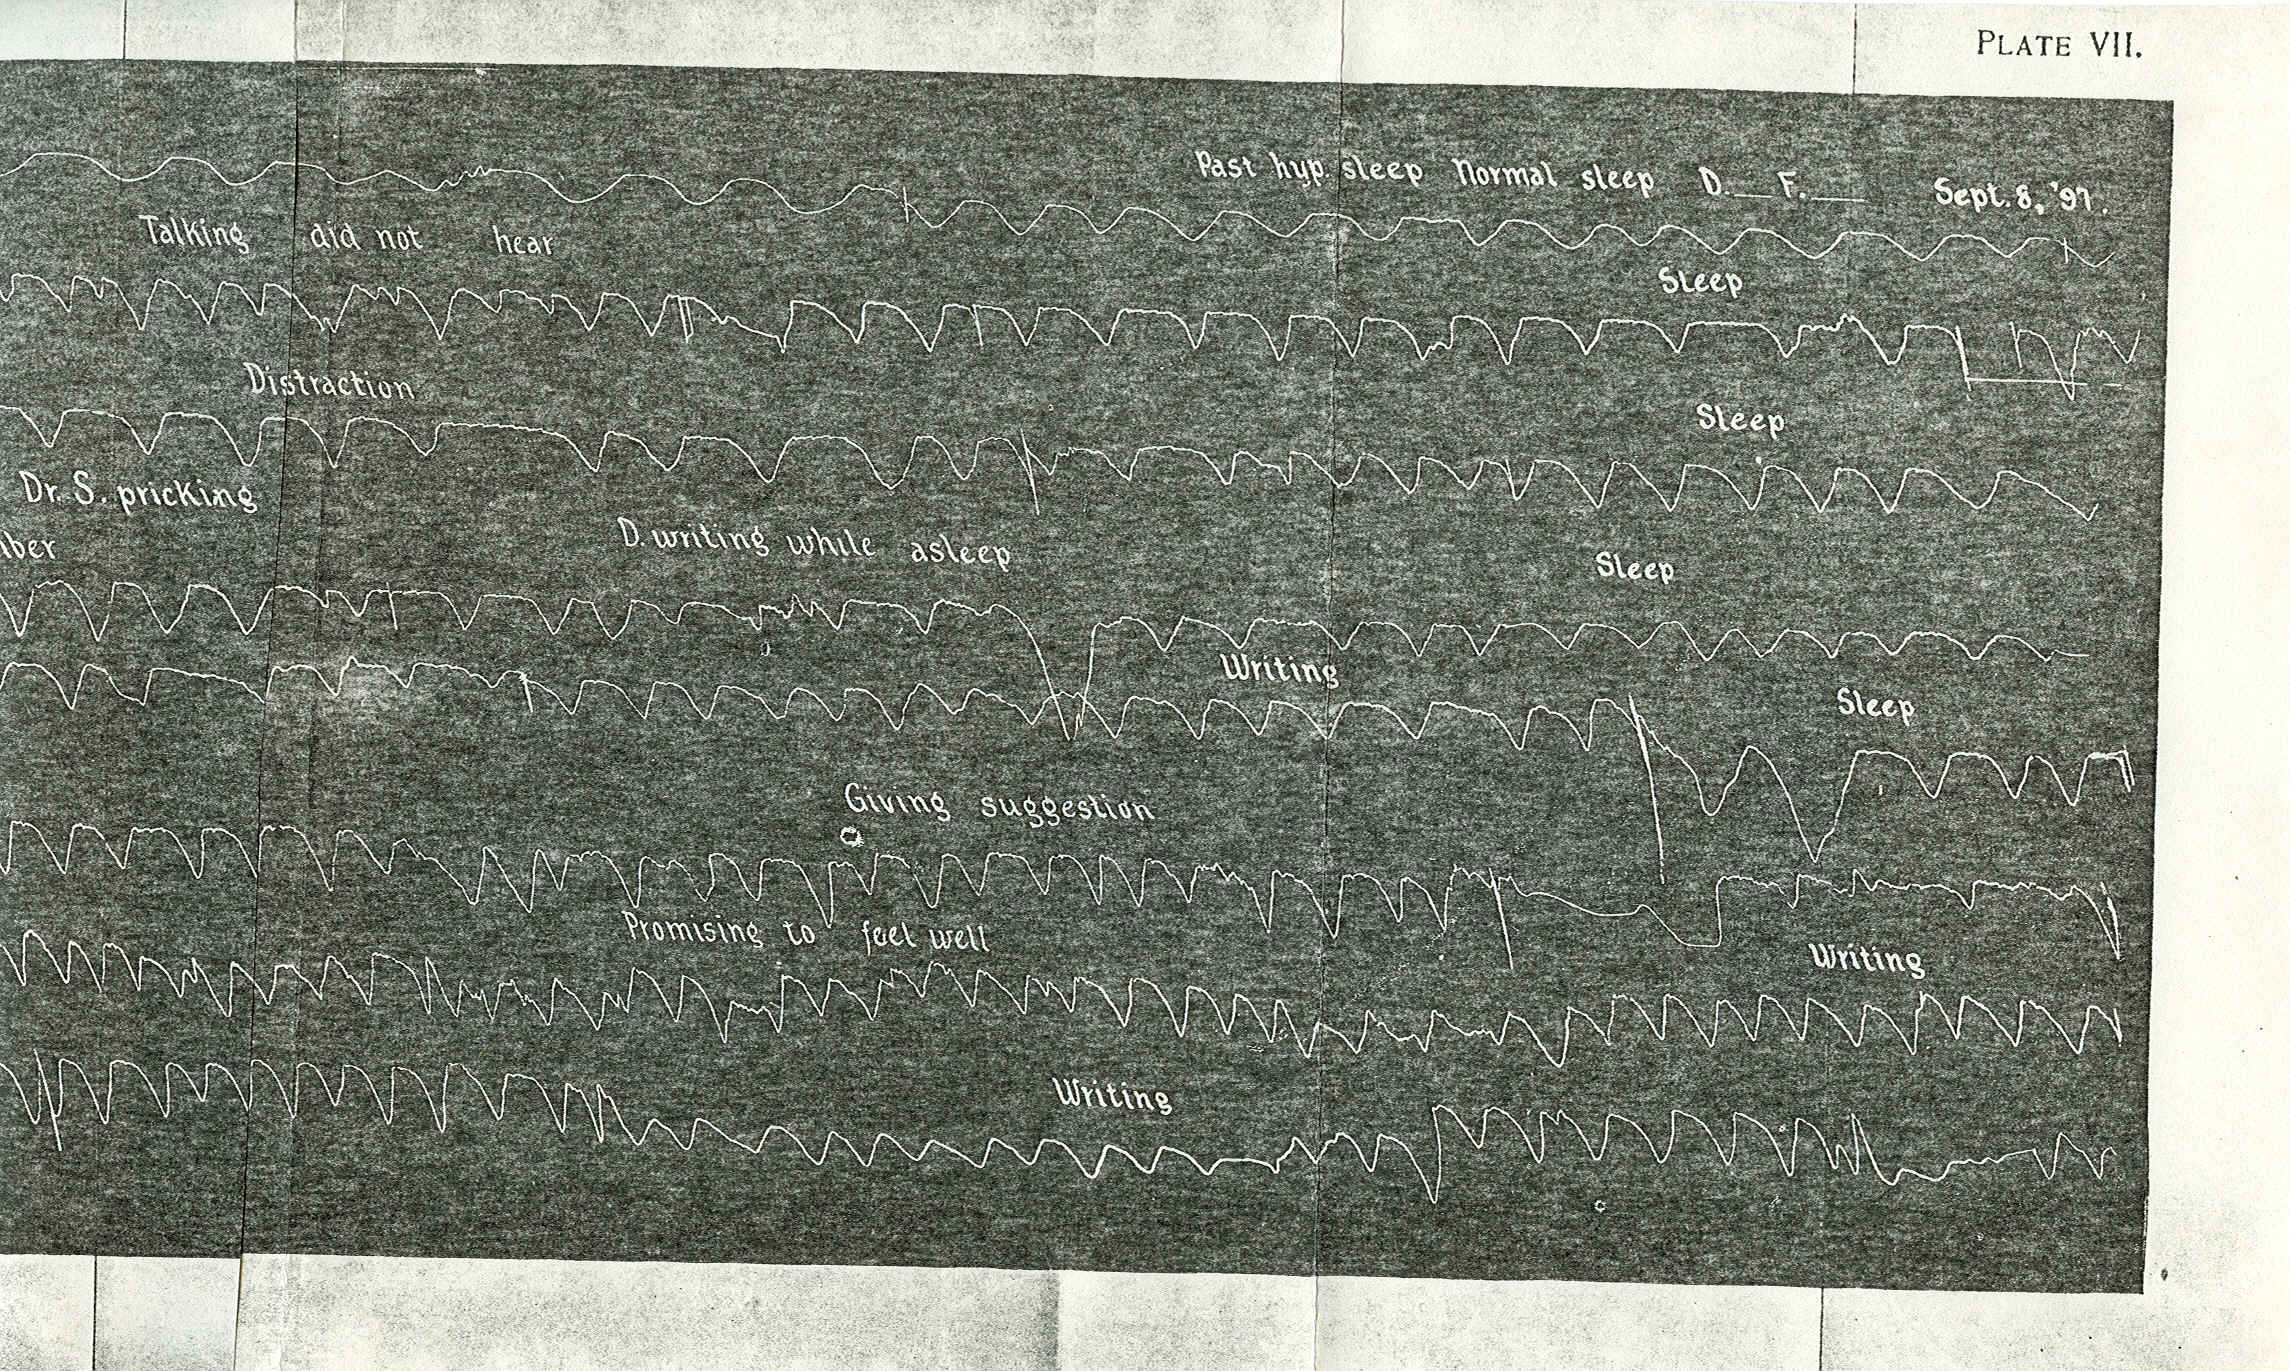 PLATE VII.
Past hyp. sleep Normal sleep D.__ F.__ Sept. 8, '97.
Talking did not hear
Sleep
Distraction
Sleep
Dr. S. pricking
D. writing while asleep
Sleep
Writing
Sleep
Giving suggestion
Promising to feel well
Writing
Writing